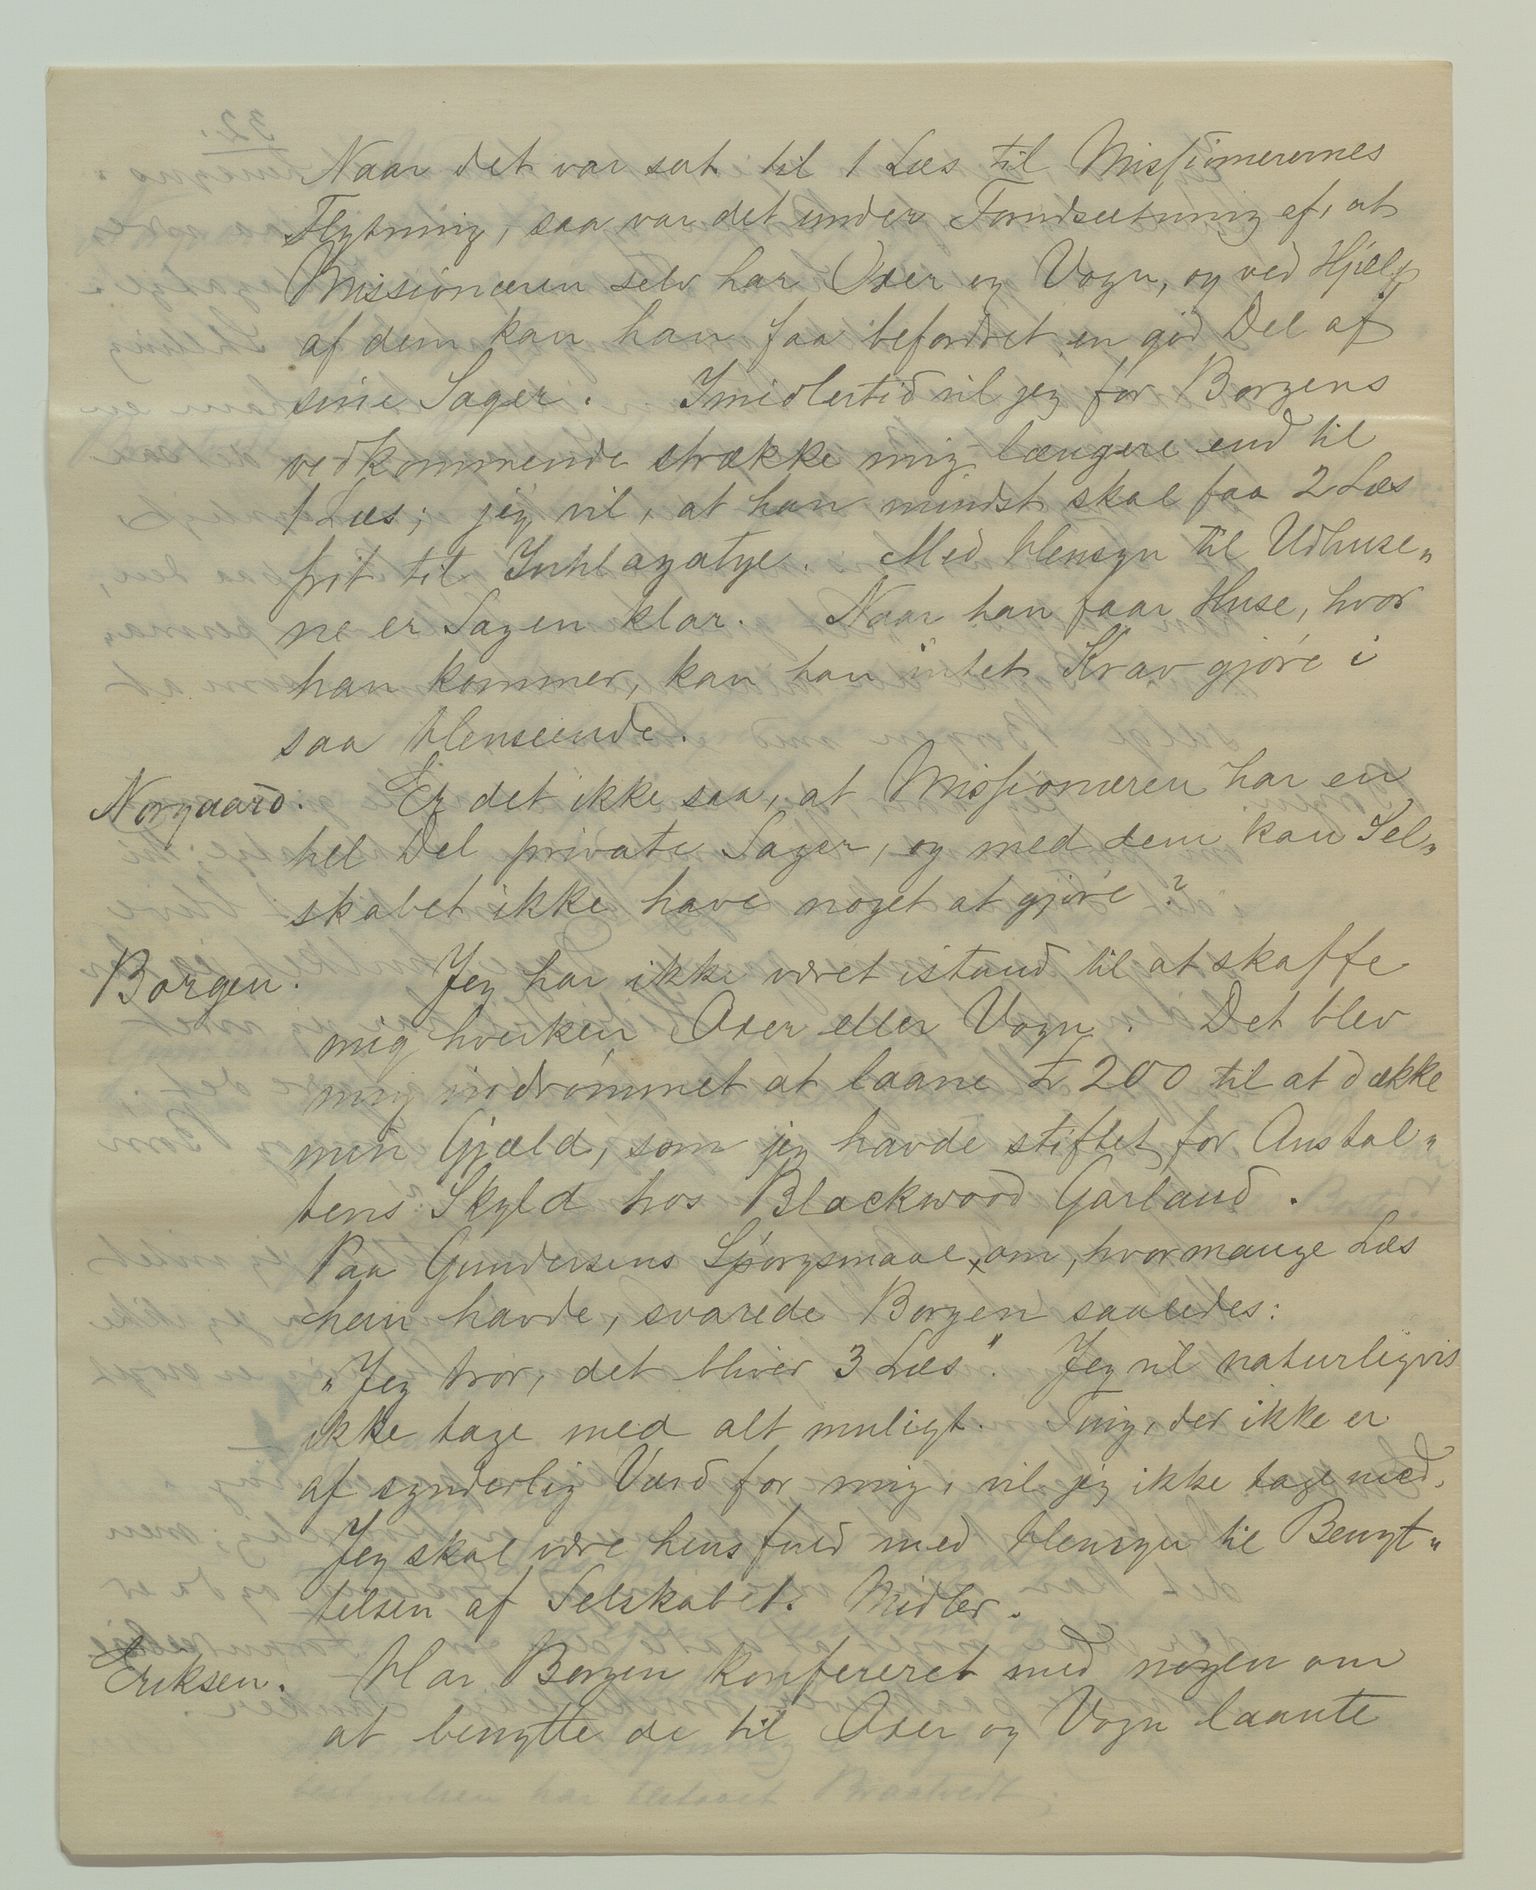 Naar det var sat til 1 Læs til Missionærernes
Flytning, saa var det under Forudsætning af, at
Missionæren selv har Oxer og Vogn, og ved Hjælp
af dem kan han faa befordret en god Del af
sine Sager. Imidlertid vil jeg for Borgens
vedkommende strække mig længere end til
1 Læs; jeg vil, at han mindst skal faa 2 Læs
frit til Inhlazatye. Med Hensyn til Udhuse„
ne er Sagen klar. Naar han faar Huse, hvor
han kommer, kan han intet Krav gjøre i
saa Henseende.
Norgaard. Er det ikke saa, at Missionæren har en
hel Del private Sager, og med dem kan Sel„
skabet ikke have noget at gjøre?
Borgen. Jeg har ikke været istand til at skaffe
mig hverken Oxer eller Vogn. Det blev
mig indrømmet at laane £ 200 til at dække
min Gjæld, som jeg havde stiftet for Anstal„
tens Skyld hos Blackwood Garland.
Paa Gundersens Spørgsmaal, om, hvormange Læs
han havde, svarede Borgen saaledes:
„Jeg tror, det bliver 3 Læs". Jeg vil naturligvis
ikke tage med alt muligt. Ting, der ikke er
af synderlig Værd for mig, vil jeg ikke tage med.
Jeg skal være hensynsfuld med Hensyn til Benyt„
telsen af Selskabets Midler.
Eriksen. Har Borgen konfereret med nogen om
at benytte de til Oxer og Vogn laante